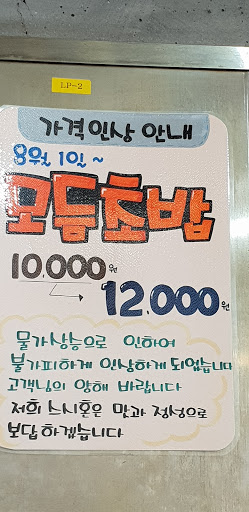 LP-2
가격인상 안내
8월 1일~
모듬초밥
10,000원
12,000원
물가상승으로 인하여
불가피하게 인상하게 되었습니다
고객님의 양해 바랍니다
저희 스시혼은 맛과 정성으로
보답하겠습니다